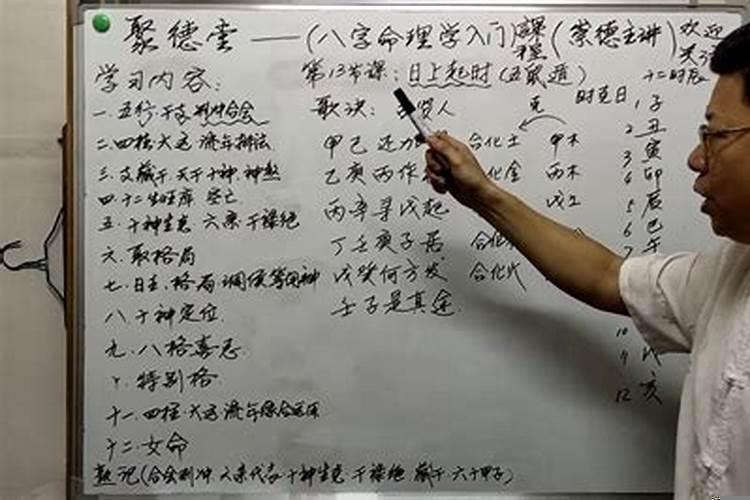 聚德堂——(八字命理学入门)课程(蔡德主讲)欢迎关注
学习内容:
第13节课:日上起时(五鼠遁)
十二时辰
一.五行.干支.刑冲合会
二.四柱大运 流年排法
三.支藏干.天干十神.神煞
四.十二生旺库 空亡
五.十神生克 六亲 干禄绝
六.取格局
七.日主.格局.调候等用神
八.十神定位
九.八格喜忌
十.特别格
十一.四柱.大运.流年综合运用
十二.女命
熟记(合会刑冲 六亲代表 十神生克 干禄绝 藏干 六十甲子)
歌诀:
甲己还加
乙庚丙作
丙辛寻戊起
丁壬庚子居
戊癸何方发
壬子是真途
合化土
合化金
合化
合化火
克
时克日
甲木
丙木
戊土
1.子
2 丑
3 寅
4 卯
5 辰
6 巳
7 午
10
11 戌
12 亥